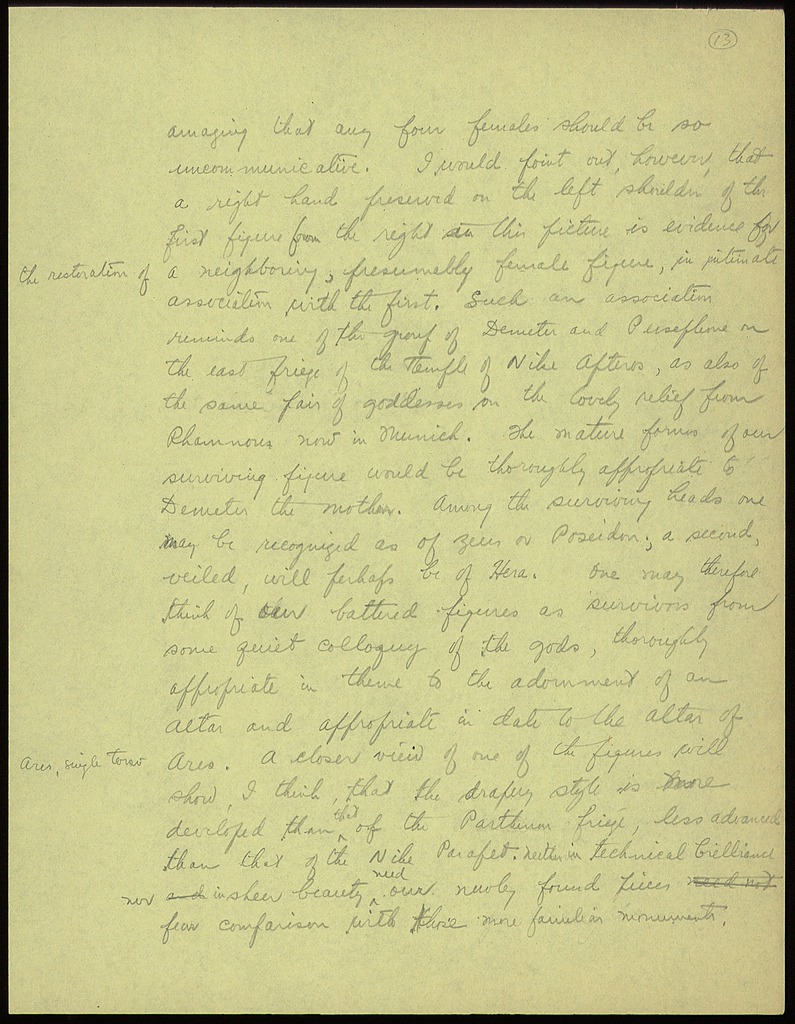 13
amazing that any four females should be so
uncommunicative. I would point out, however, that
a right hand preserved on the left shoulder of the
first figure from the right in this picture is evidence for
the restoration of a neighboring, presumably female figure, in intimate
association with the first. Such an association
reminds one of the group of Demeter and Persephone on
the east frieze of the Temple of Nike Apteros, as also of
the same pair of goddesses on the lovely relief from
Rhamnous now in Munich. The mature forms of our
surviving figure would be thoroughly appropriate to
Demeter the mother. Among the surviving heads one
may be recognized as of Zeus or Poseidon; a second,
veiled, will perhaps be of Hera. One may therefore
think of our battered figures as survivors from
some quiet colloquy of the gods, thoroughly
appropriate in theme to the adornment of an
altar and appropriate in date to the altar of
Ares, single torso Ares. A closer view of one of the figures will
show, I think, that the drapery style is more
developed than that of the Parthenon frieze, less advanced
than that of the Nike Parapet. Neither in technical brilliance
nor and in sheer beauty need our newly found pieces need not
fear comparison with those more familiar monuments.